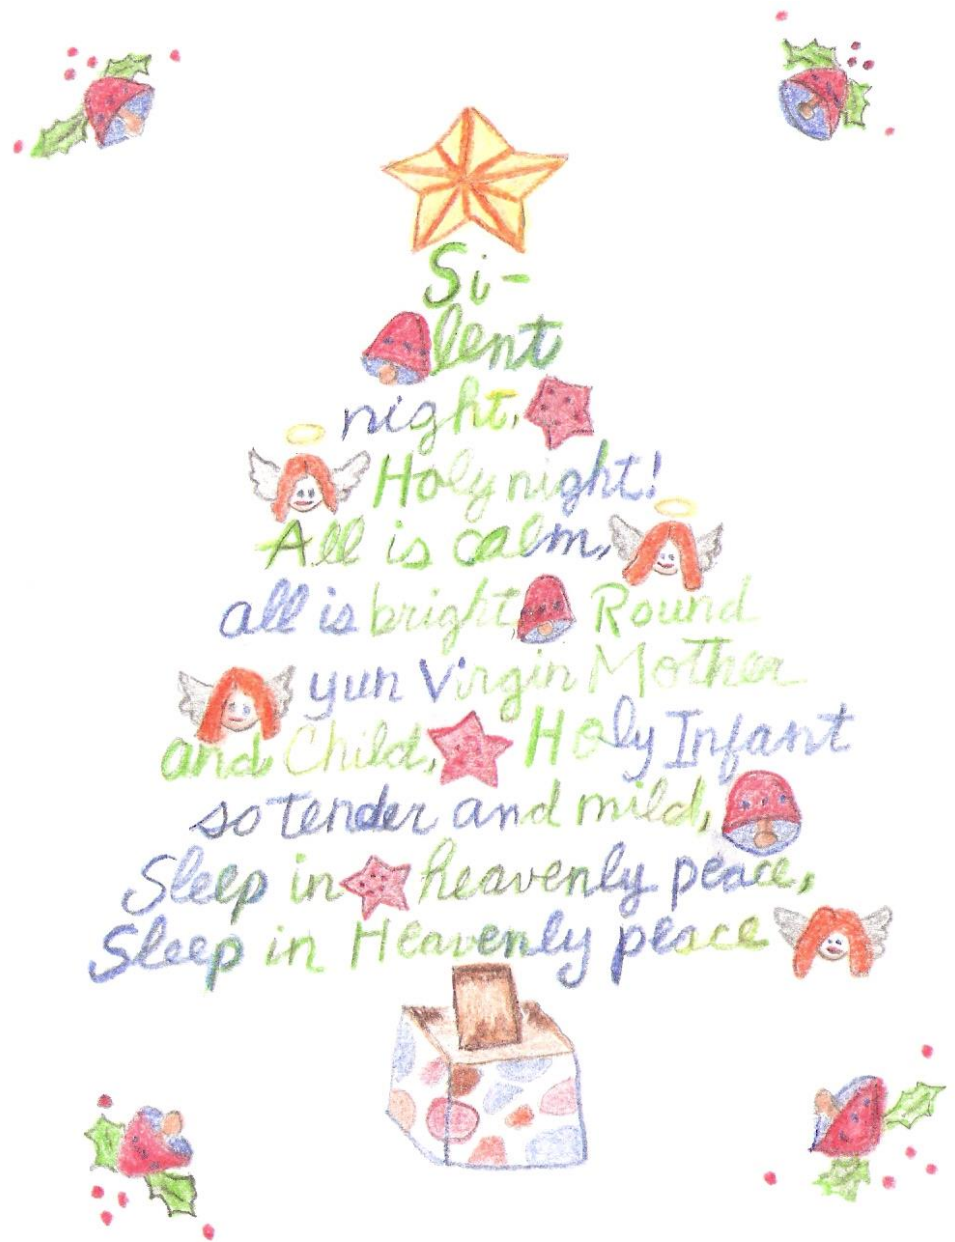 Si-
lent
night,
Holy night!
All is calm,
all is bright Round
yun Virgin Mother
and Child, Holy Infant
so tender and mild,
Sleep in heavenly peace,
Sleep in Heavenly peace